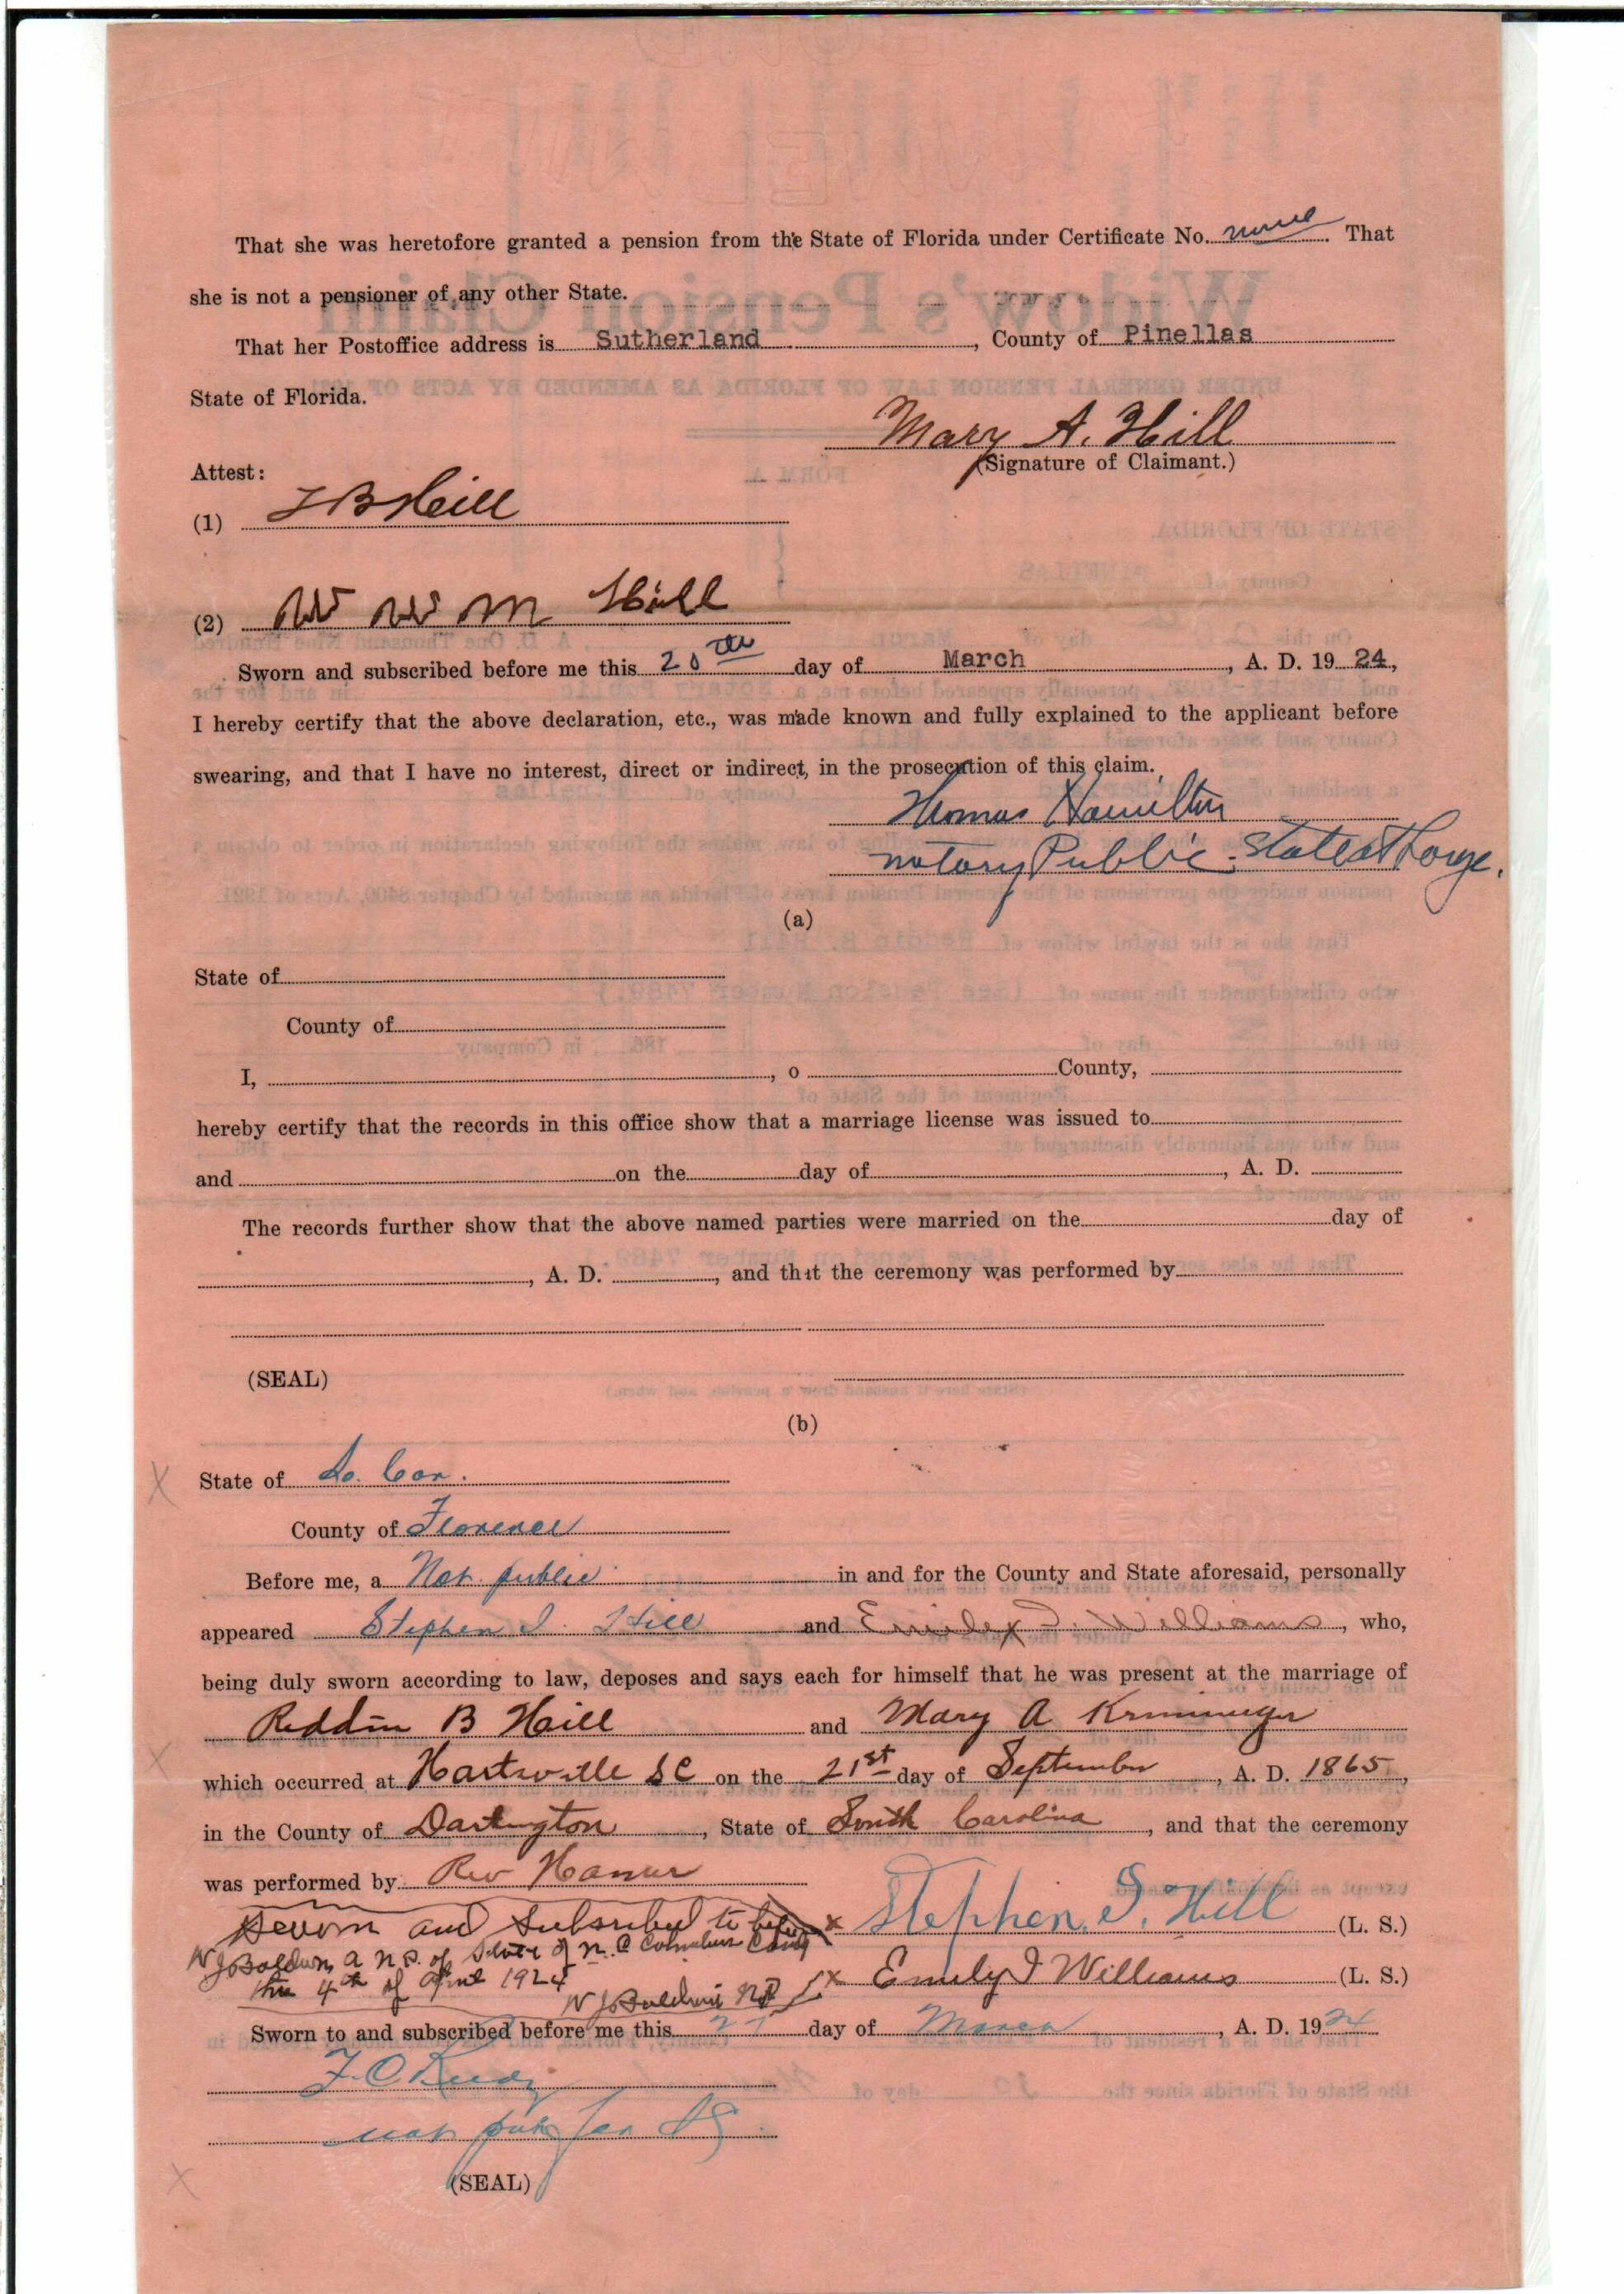 That she was heretofore granted a pension from the State of Florida under Certificate No. none. That
she is not a pensioner of any other State.
That her Postoffice address is Sutherland, County of Pinellas
State of Florida.
Mary A. Hill
(Signature of Claimant.)
Attest:
(1) J B Hill
(2) W W M Hill
Sworn and subscribed before me this 20th day of March, A. D. 1924,
I hereby certify that the above declaration, etc., was made known and fully explained to the applicant before
swearing, and that I have no interest, direct or indirect, in the prosecution of this claim.
Thomas Hamilton
Notary Public. State at Large.
(a)
State of
County of
I, , o County,
hereby certify that the records in this office show that a marriage license was issued to
and on the day of , A. D.
The records further show that the above named parties were married on the day of
, A. D. , and that the ceremony was performed by
(SEAL)
(b)
State of So. Car.
County of Florence
Before me, a Not. public in and for the County and State aforesaid, personally
appeared Stephen I. Hill and Emiley I. Williams, who,
being duly sworn according to law, deposes and says each for himself that he was present at the marriage of
Reddin B Hill and Mary A
which occurred at Hartsville SC on the 21st day of September, A. D. 1865,
in the County of Darlington, State of South Carolina, and that the ceremony
was performed by Rev
Sworn and Subscribed to before x Stephen. I. Hill (L. S.)
W J Baldwin, a N.P. of State of N. C Columbus County
this 4th of April 1924 x Emily I Williams (L. S.)
W J Baldwin NP
Sworn to and subscribed before me this 27 day of March, A. D. 1924
F. C.
not pub for SC.
(SEAL)